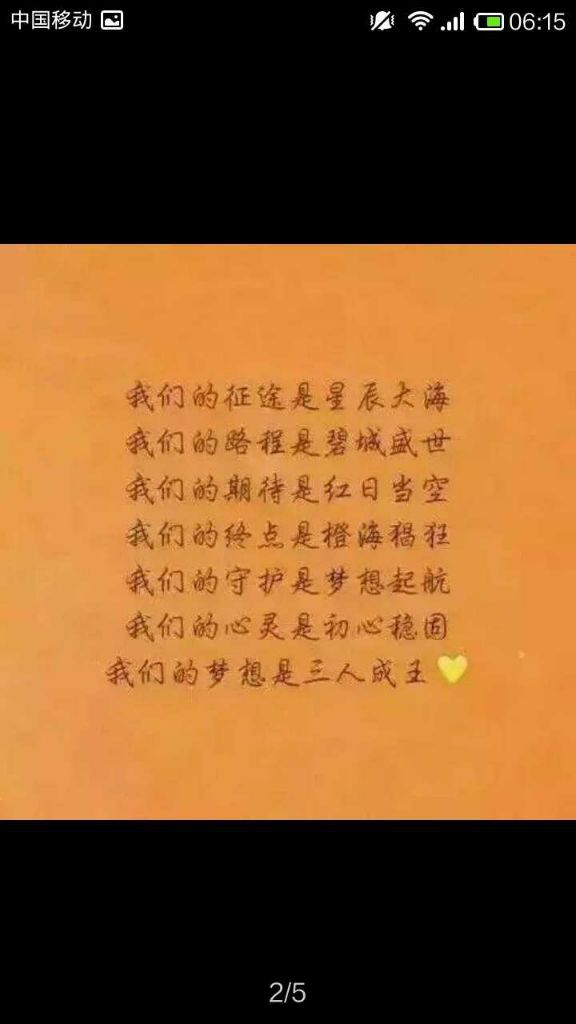 中国移动 06:15
我们的征途是星辰大海
我们的路程是碧城盛世
我们的期待是红日当空
我们的终点是橙海猖狂
我们的守护是梦想起航
我们的心灵是初心稳固
我们的梦想是三人成王💛
2/5